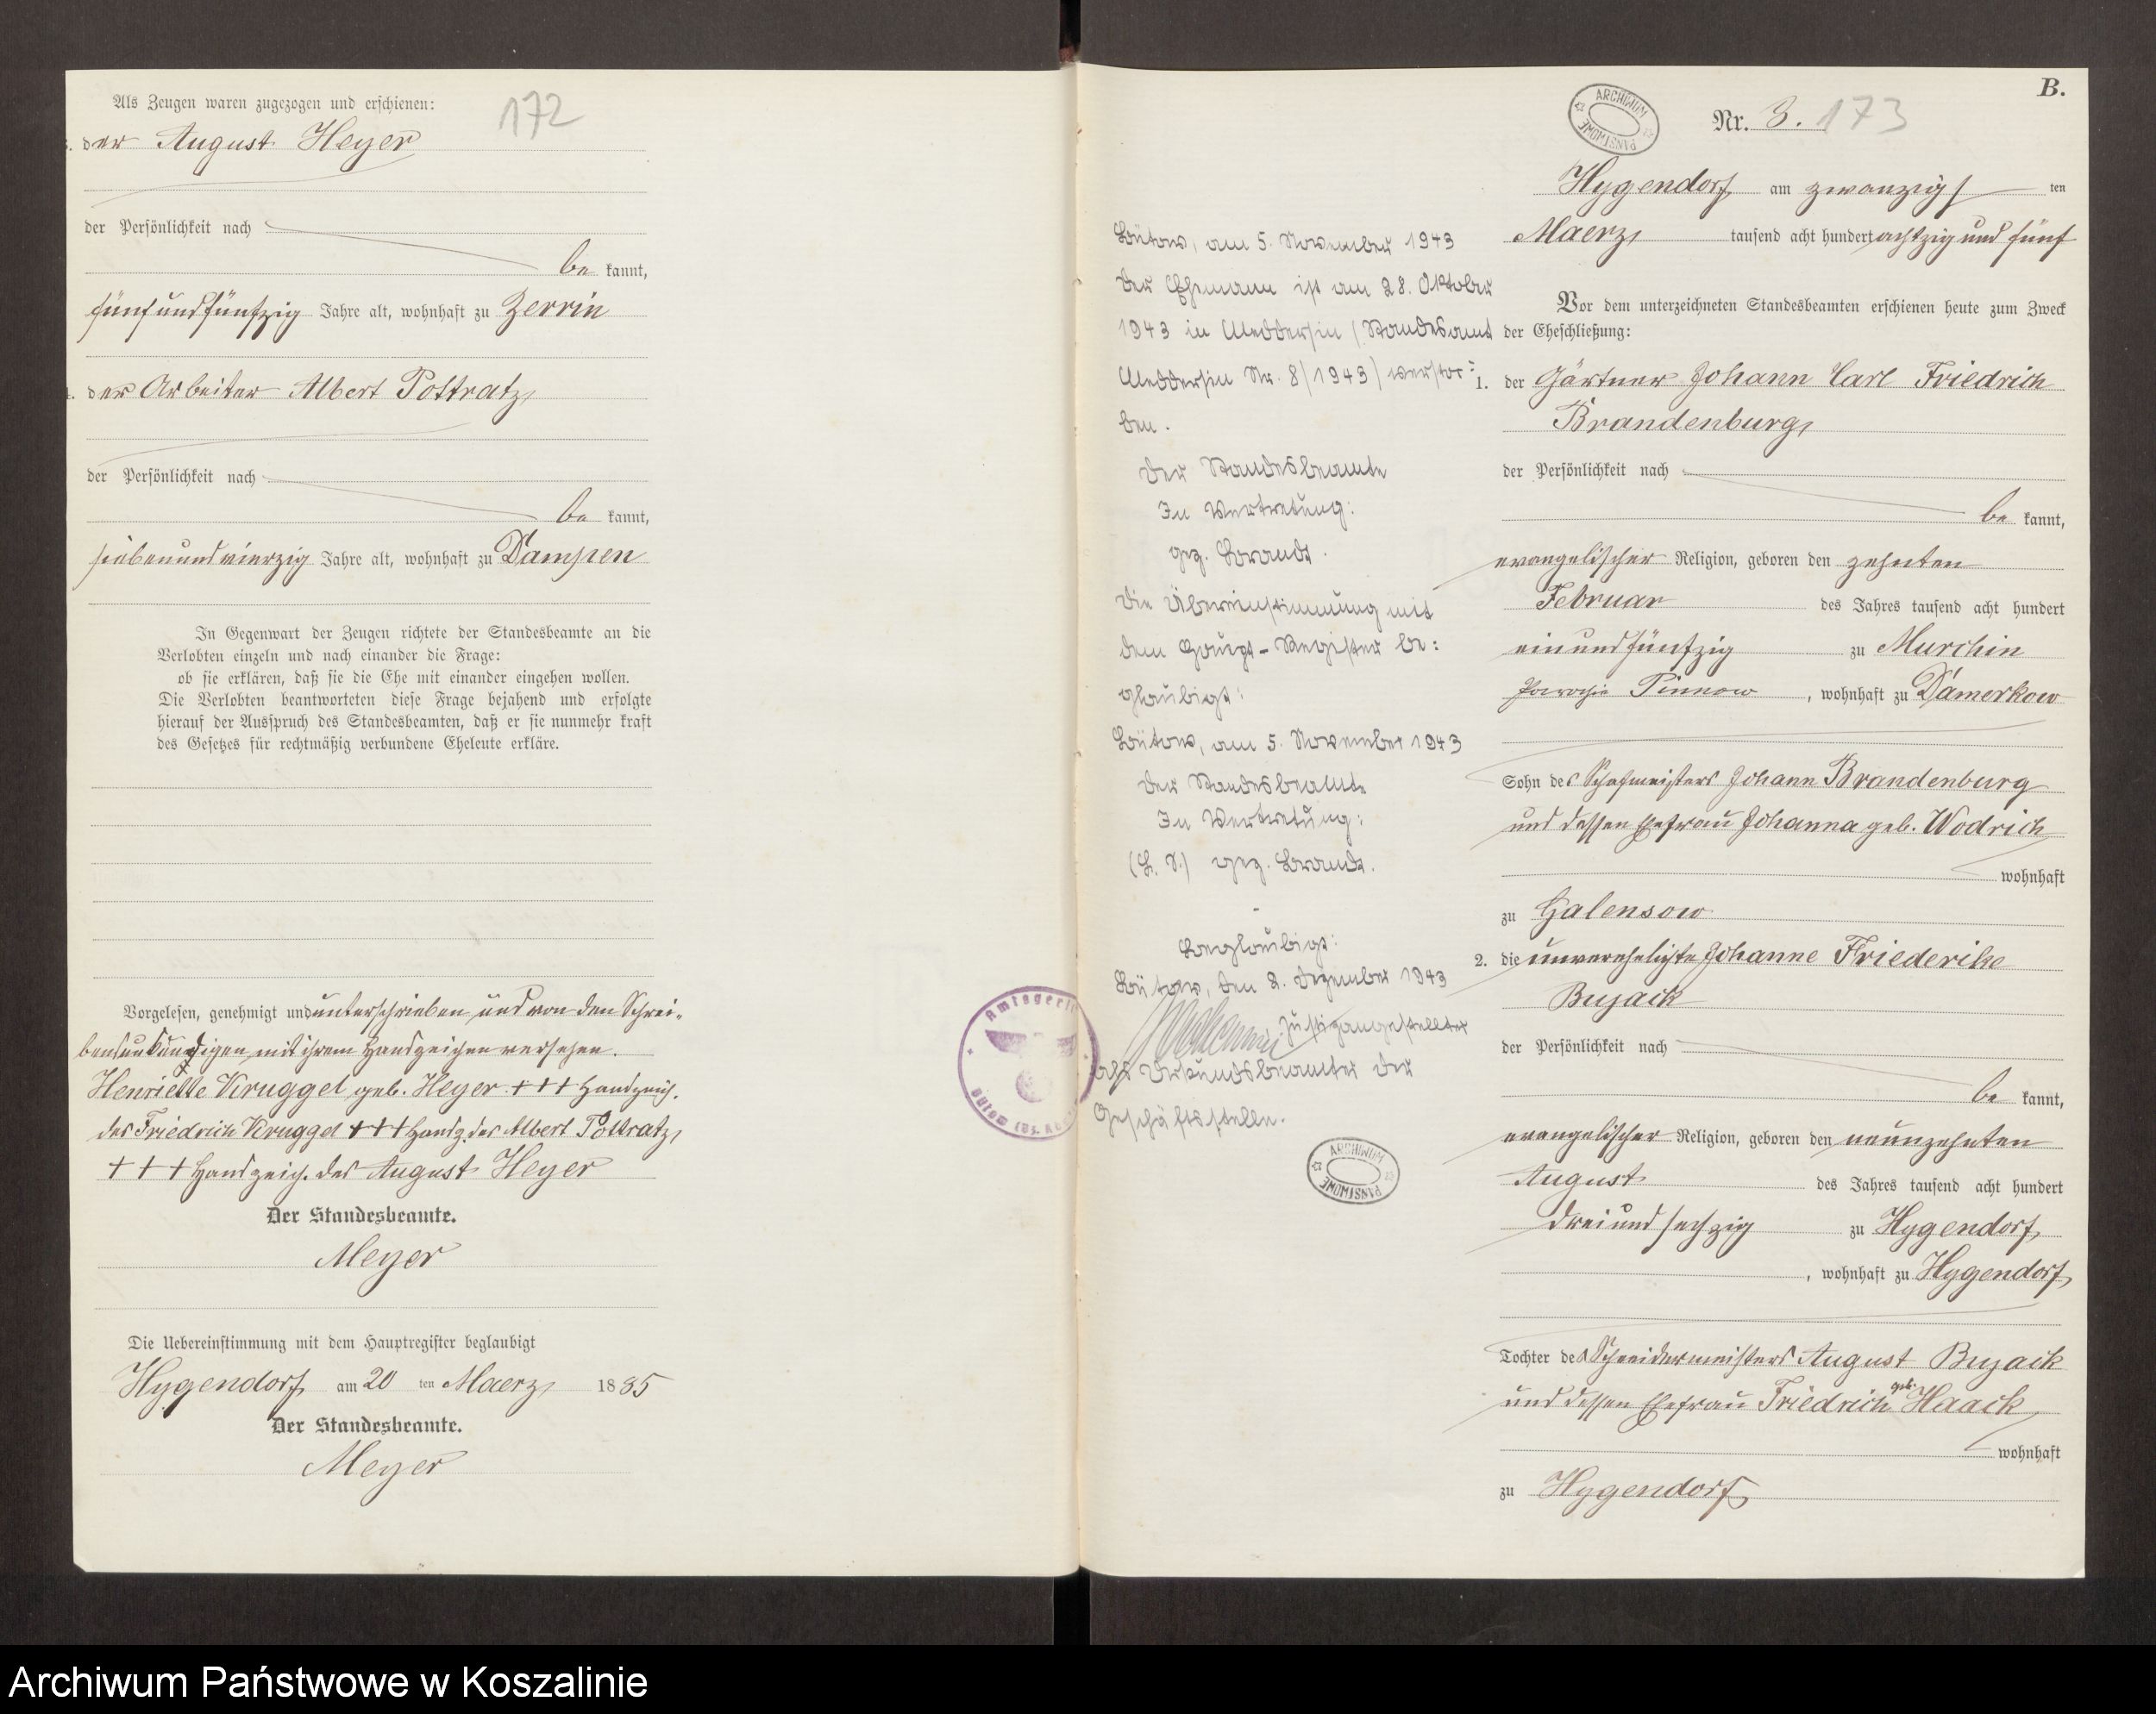 172
Als Zeugen waren zugezogen und erschienen:
der August Heyer
der Persönlichkeit nach
be kannt,
fünfundfünfzig Jahre alt, wohnhaft zu Zerrin
der Arbeiter Albert Pottratz,
der Persönlichkeit nach
be kannt,
siebenundvierzig Jahre alt, wohnhaft zu Dampen
In Gegenwart der Zeugen richtete der Standesbeamte an die
Verlobten einzeln und nach einander die Frage:
ob sie erklären, daß sie die Ehe mit einander eingehen wollen.
Die Verlobten beantworteten diese Frage bejahend und erfolgte
hierauf der Ausspruch des Standesbeamten, daß er sie nunmehr kraft
des Gesetzes für rechtmäßig verbundene Eheleute erkläre.
Vorgelesen, genehmigt und unterschrieben und von den Schrei-
bensunkundigen mit ihrem Handzeichen versehen.
Henriette Kruggel geb. Heyer +++ Handzeich.
des Friedrich Kruggel +++ Handz. des Albert Pottratz,
+++ Handzeich. des August Heyer
Der Standesbeamte.
Meyer
Die Uebereinstimmung mit dem Hauptregister beglaubigt
Hygendorf am 20 ten Maerz 1885
Der Standesbeamte.
Meyer
Amtsgericht
Bütow
B.
ARCHIWUM PAŃSTWOWE
Nr. 3. 173
Hygendorf am zwanzigs ten
Maerz tausend acht hundert achtzig und fünf
Vor dem unterzeichneten Standesbeamten erschienen heute zum Zweck
der Eheschließung:
1. der Gärtner Johann Carl Friedrich
Brandenburg,
der Persönlichkeit nach
be kannt,
evangelischer Religion, geboren den zehnten
Februar des Jahres tausend acht hundert
einundfünfzig zu Murchin
Parochie Pinnow, wohnhaft zu Damerkow
Sohn des Schafmeisters Johann Brandenburg
und dessen Ehefrau Johanna geb. Wodrich
wohnhaft
zu Galensow
2. die unverehelichte Johanne Friederike
Buzack
der Persönlichkeit nach
be kannt,
evangelischer Religion, geboren den neunzehnten
August des Jahres tausend acht hundert
dreiundsechzig zu Hygendorf,
, wohnhaft zu Hygendorf,
Tochter des Schneidermeisters August Buzack
und dessen Ehefrau Friedrich geb. Haack
wohnhaft
zu Hygendorf
Bütow, am 5. November 1943
Der Ehemann ist am 28. Oktober
1943 in Meddersin (Standesamt
Meddersin Nr. 8/1943) verstor-
ben.
Der Standesbeamte
In Vertretung:
gez. Brandt.
Die Übereinstimmung mit
dem Haupt-Register be:
glaubigt:
Bütow, am 5. November 1943
Der Standesbeamte
In Vertretung:
(L. S.) gez. Brandt.
Beglaubigt:
Bütow, den 2. Dezember 1943
Justizangestellter
als Urkundsbeamter der
Geschäftsstelle.
ARCHIWUM PAŃSTWOWE
Archiwum Państwowe w Koszalinie